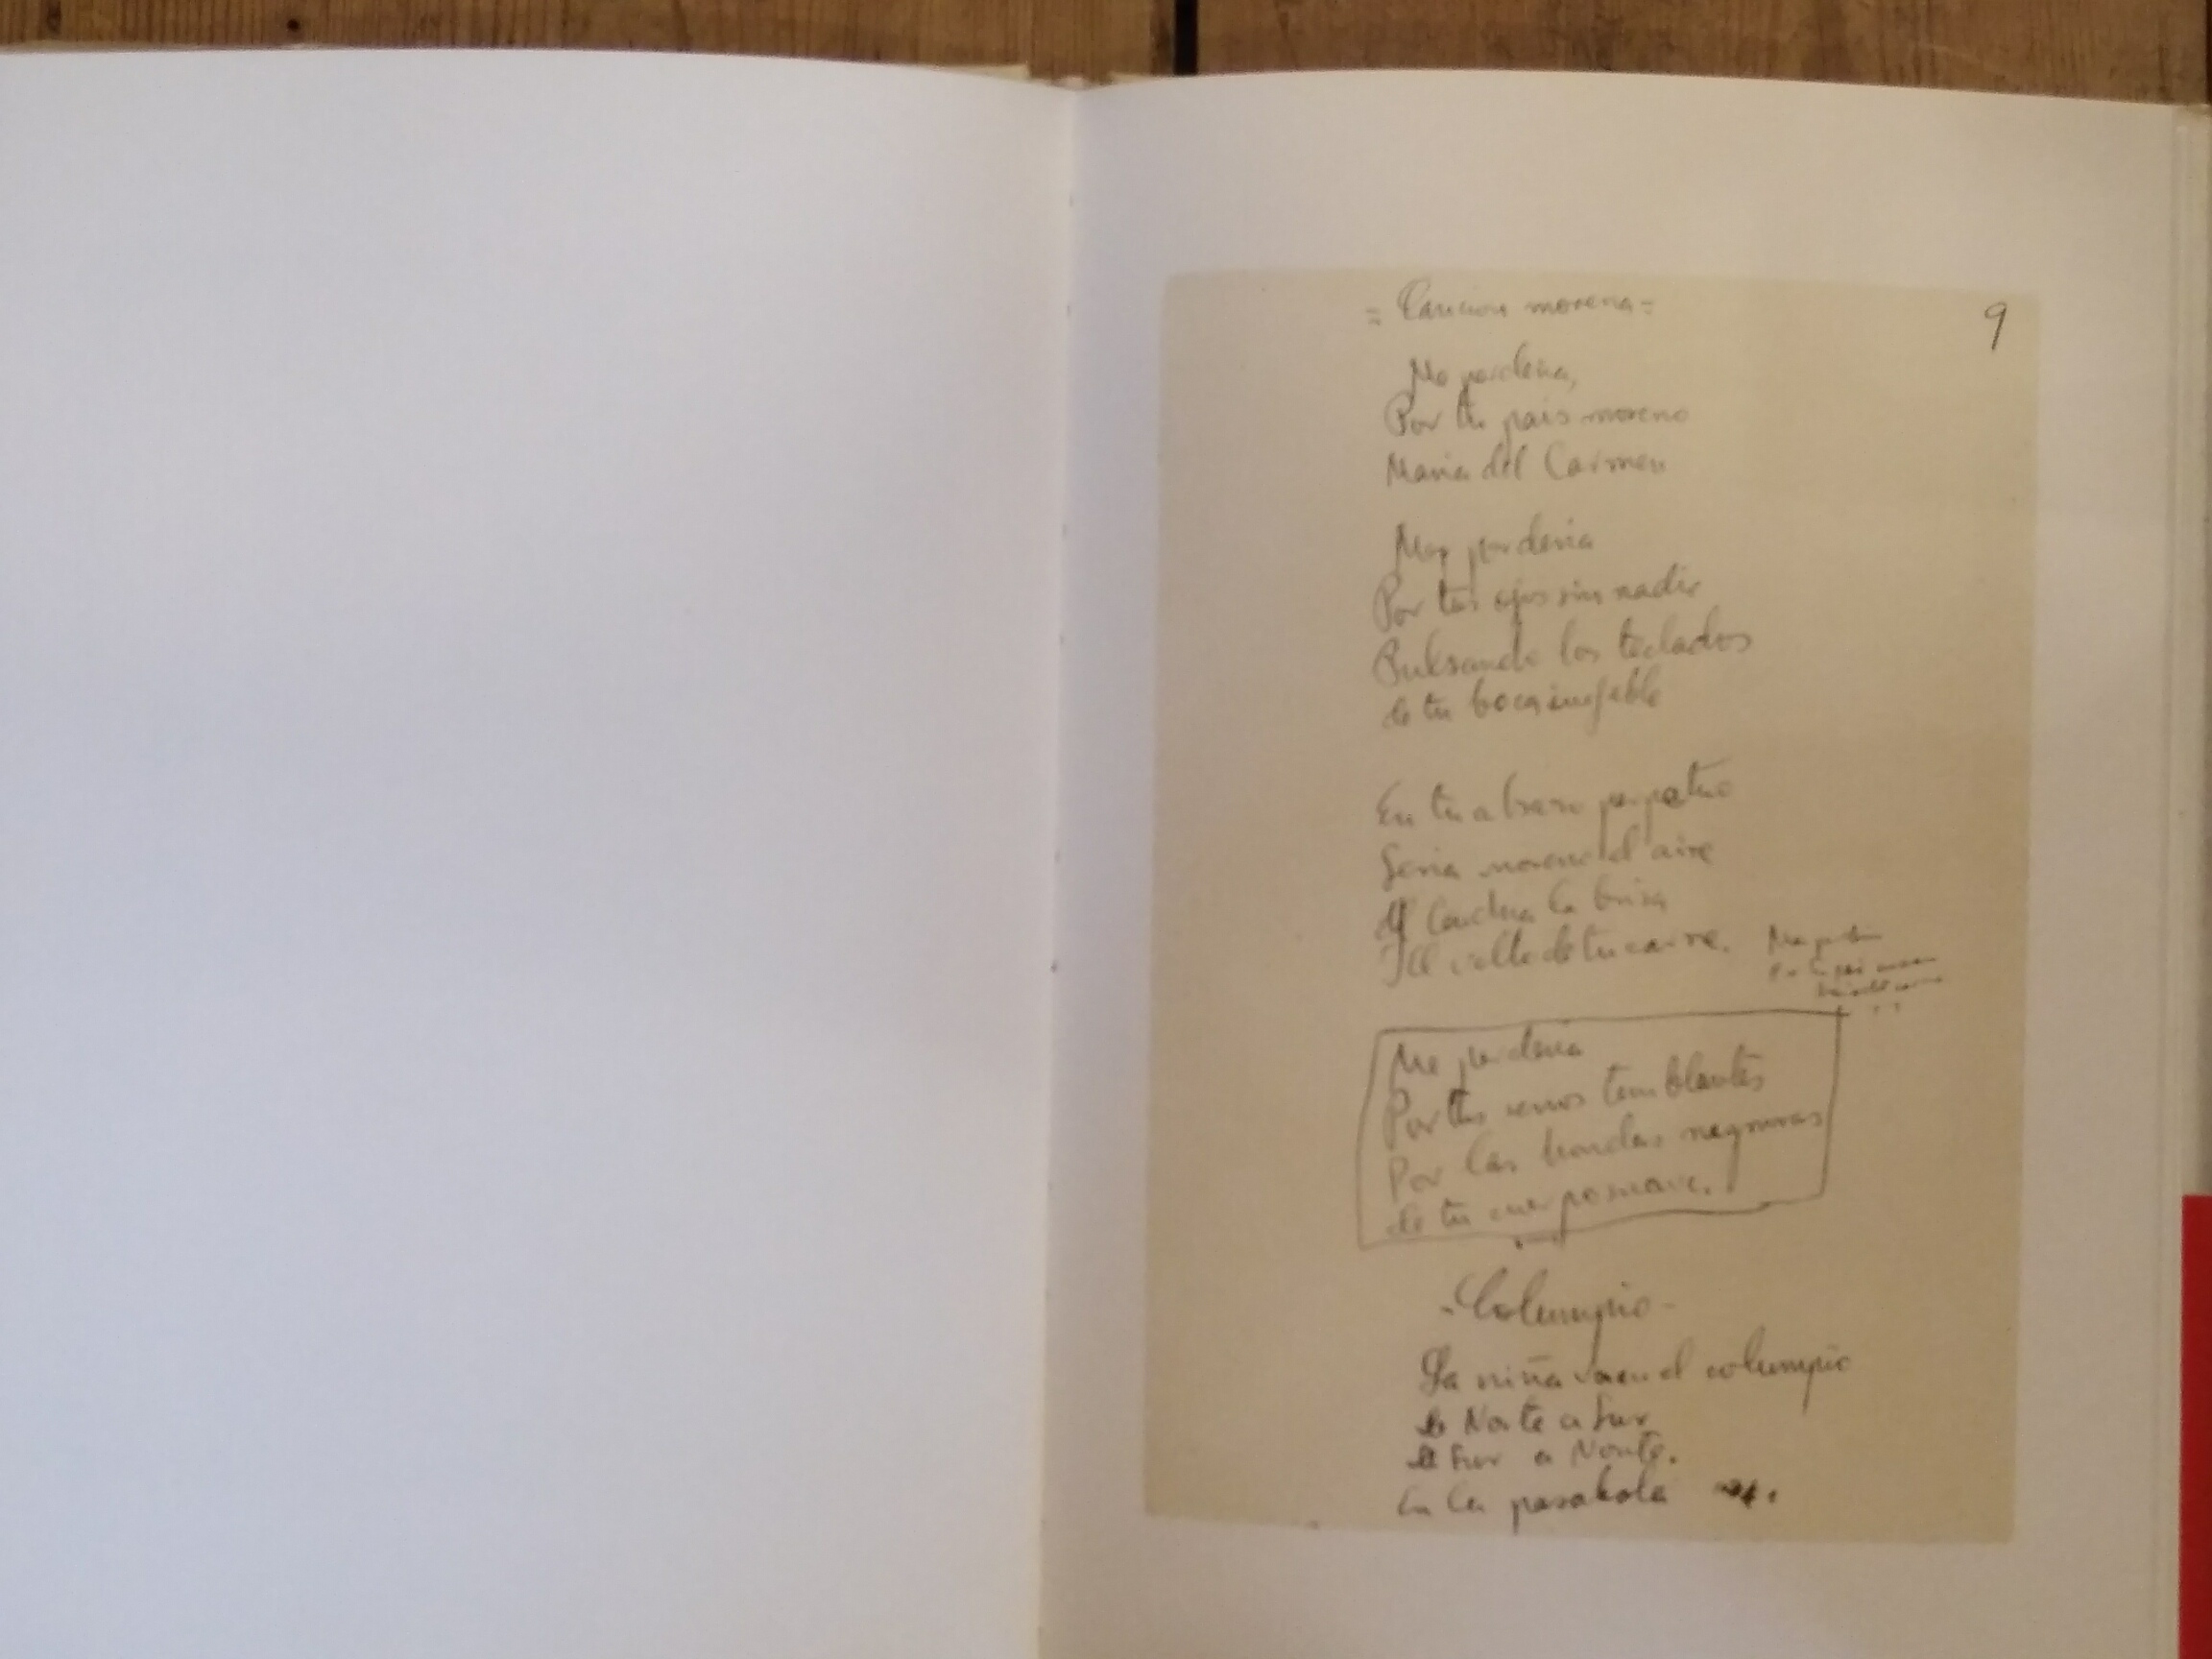 = Cancion morena =
9
Me perderia,
Por tu pais moreno
Maria del Carmen
Me perderia
Por tus ojos sin nadie
Pulsando los teclados
de tu boca inefable
En tu abrazo perpetuo
Seria moreno el aire
la brisa
el vello de tu carne.
Me perderia
Por tus senos temblantes
Por las hondas negruras
de tu cuerpo suave.
- Columpio -
La niña va en el columpio
de Norte a Sur
de Sur a Norte.
En la parabola